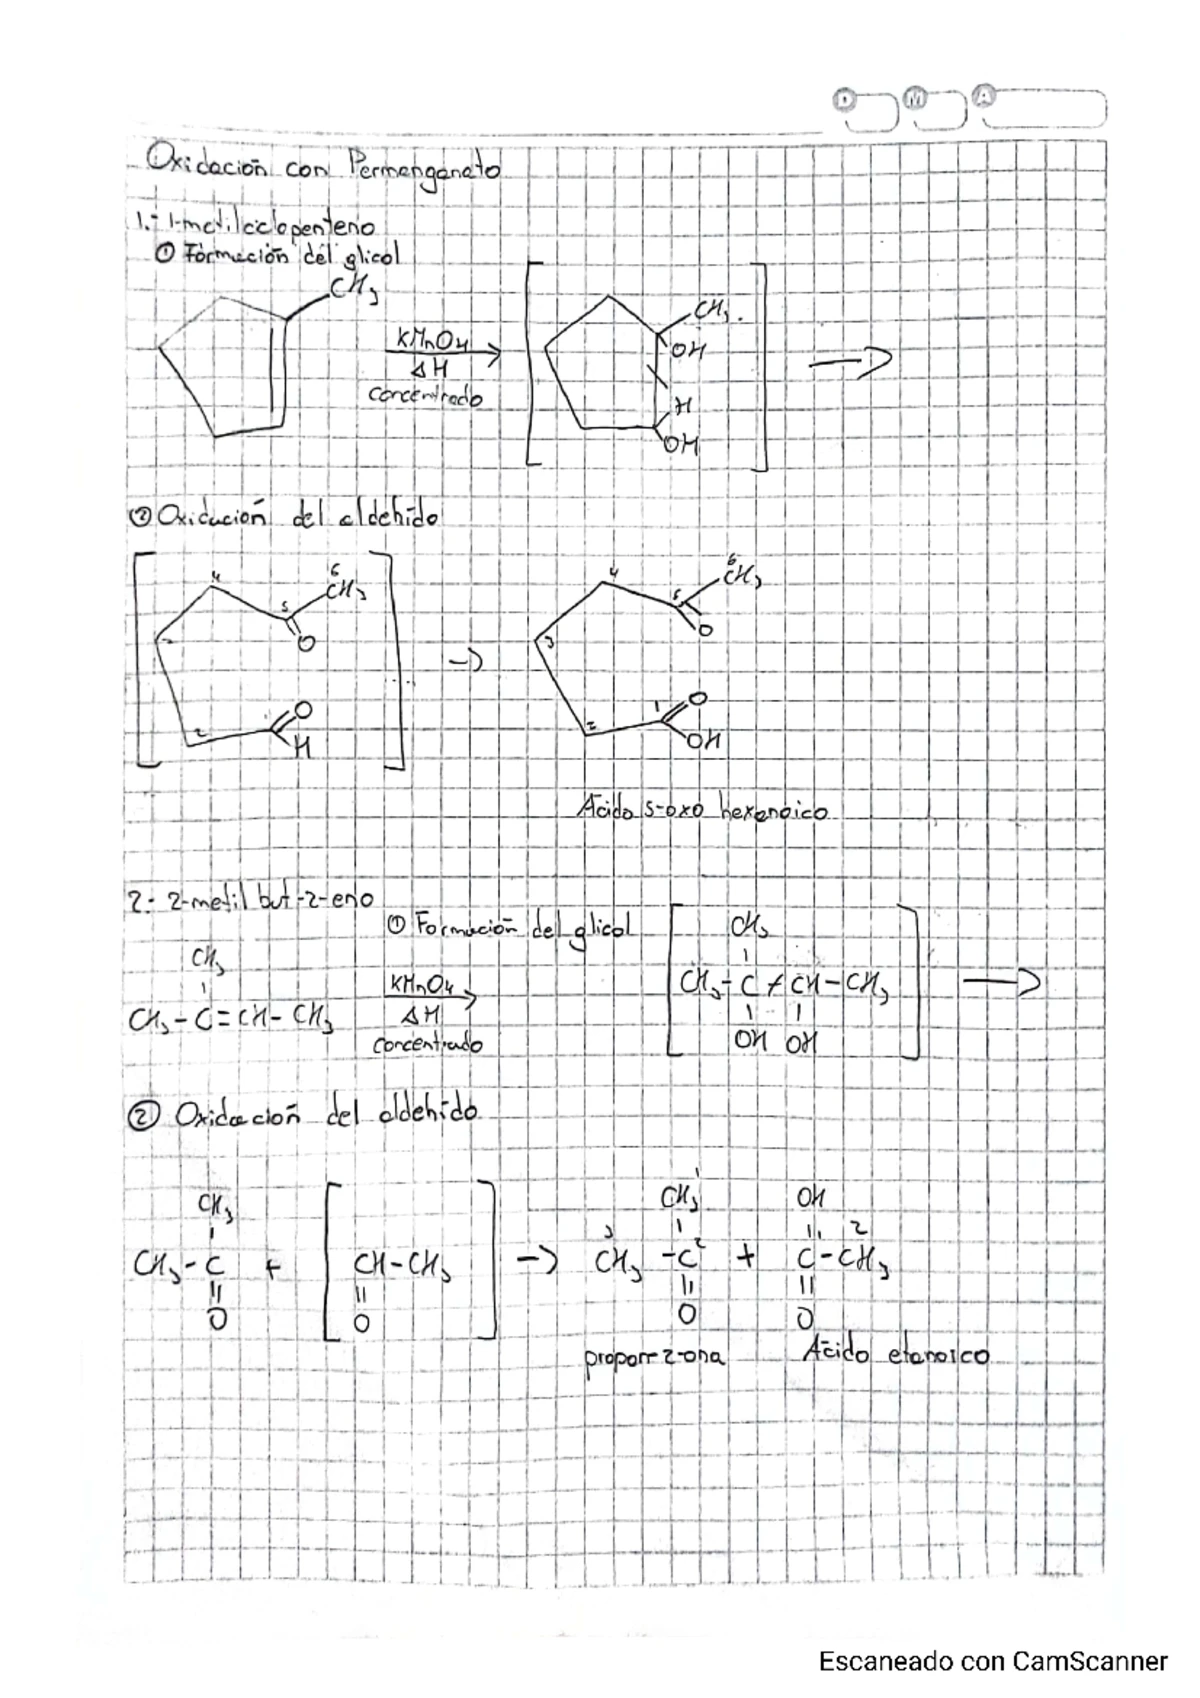 D M A
Oxidación con Permanganato
1.- 1-metilciclopenteno
① Formación del glicol
CH3
KMnO4
ΔH
concentrado
CH3
OH
H
OH
② Oxidación del aldehído
4 5 6 CH3
O
2
O
H
4 5 6 CH3
O
3
1 O
2
OH
Ácido 5-oxo hexanoico
2.- 2-metil but-2-eno
① Formación del glicol
CH3
CH3-C=CH-CH3
KMnO4
ΔH
concentrado
CH3
CH3-C-CH-CH3
OH OH
② Oxidación del aldehído
CH3
CH3-C + CH-CH3
O O
1
CH3 OH
3 2 2
CH3-C + C-CH3
O O
propan-2-ona Ácido etanoico
Escaneado con CamScanner